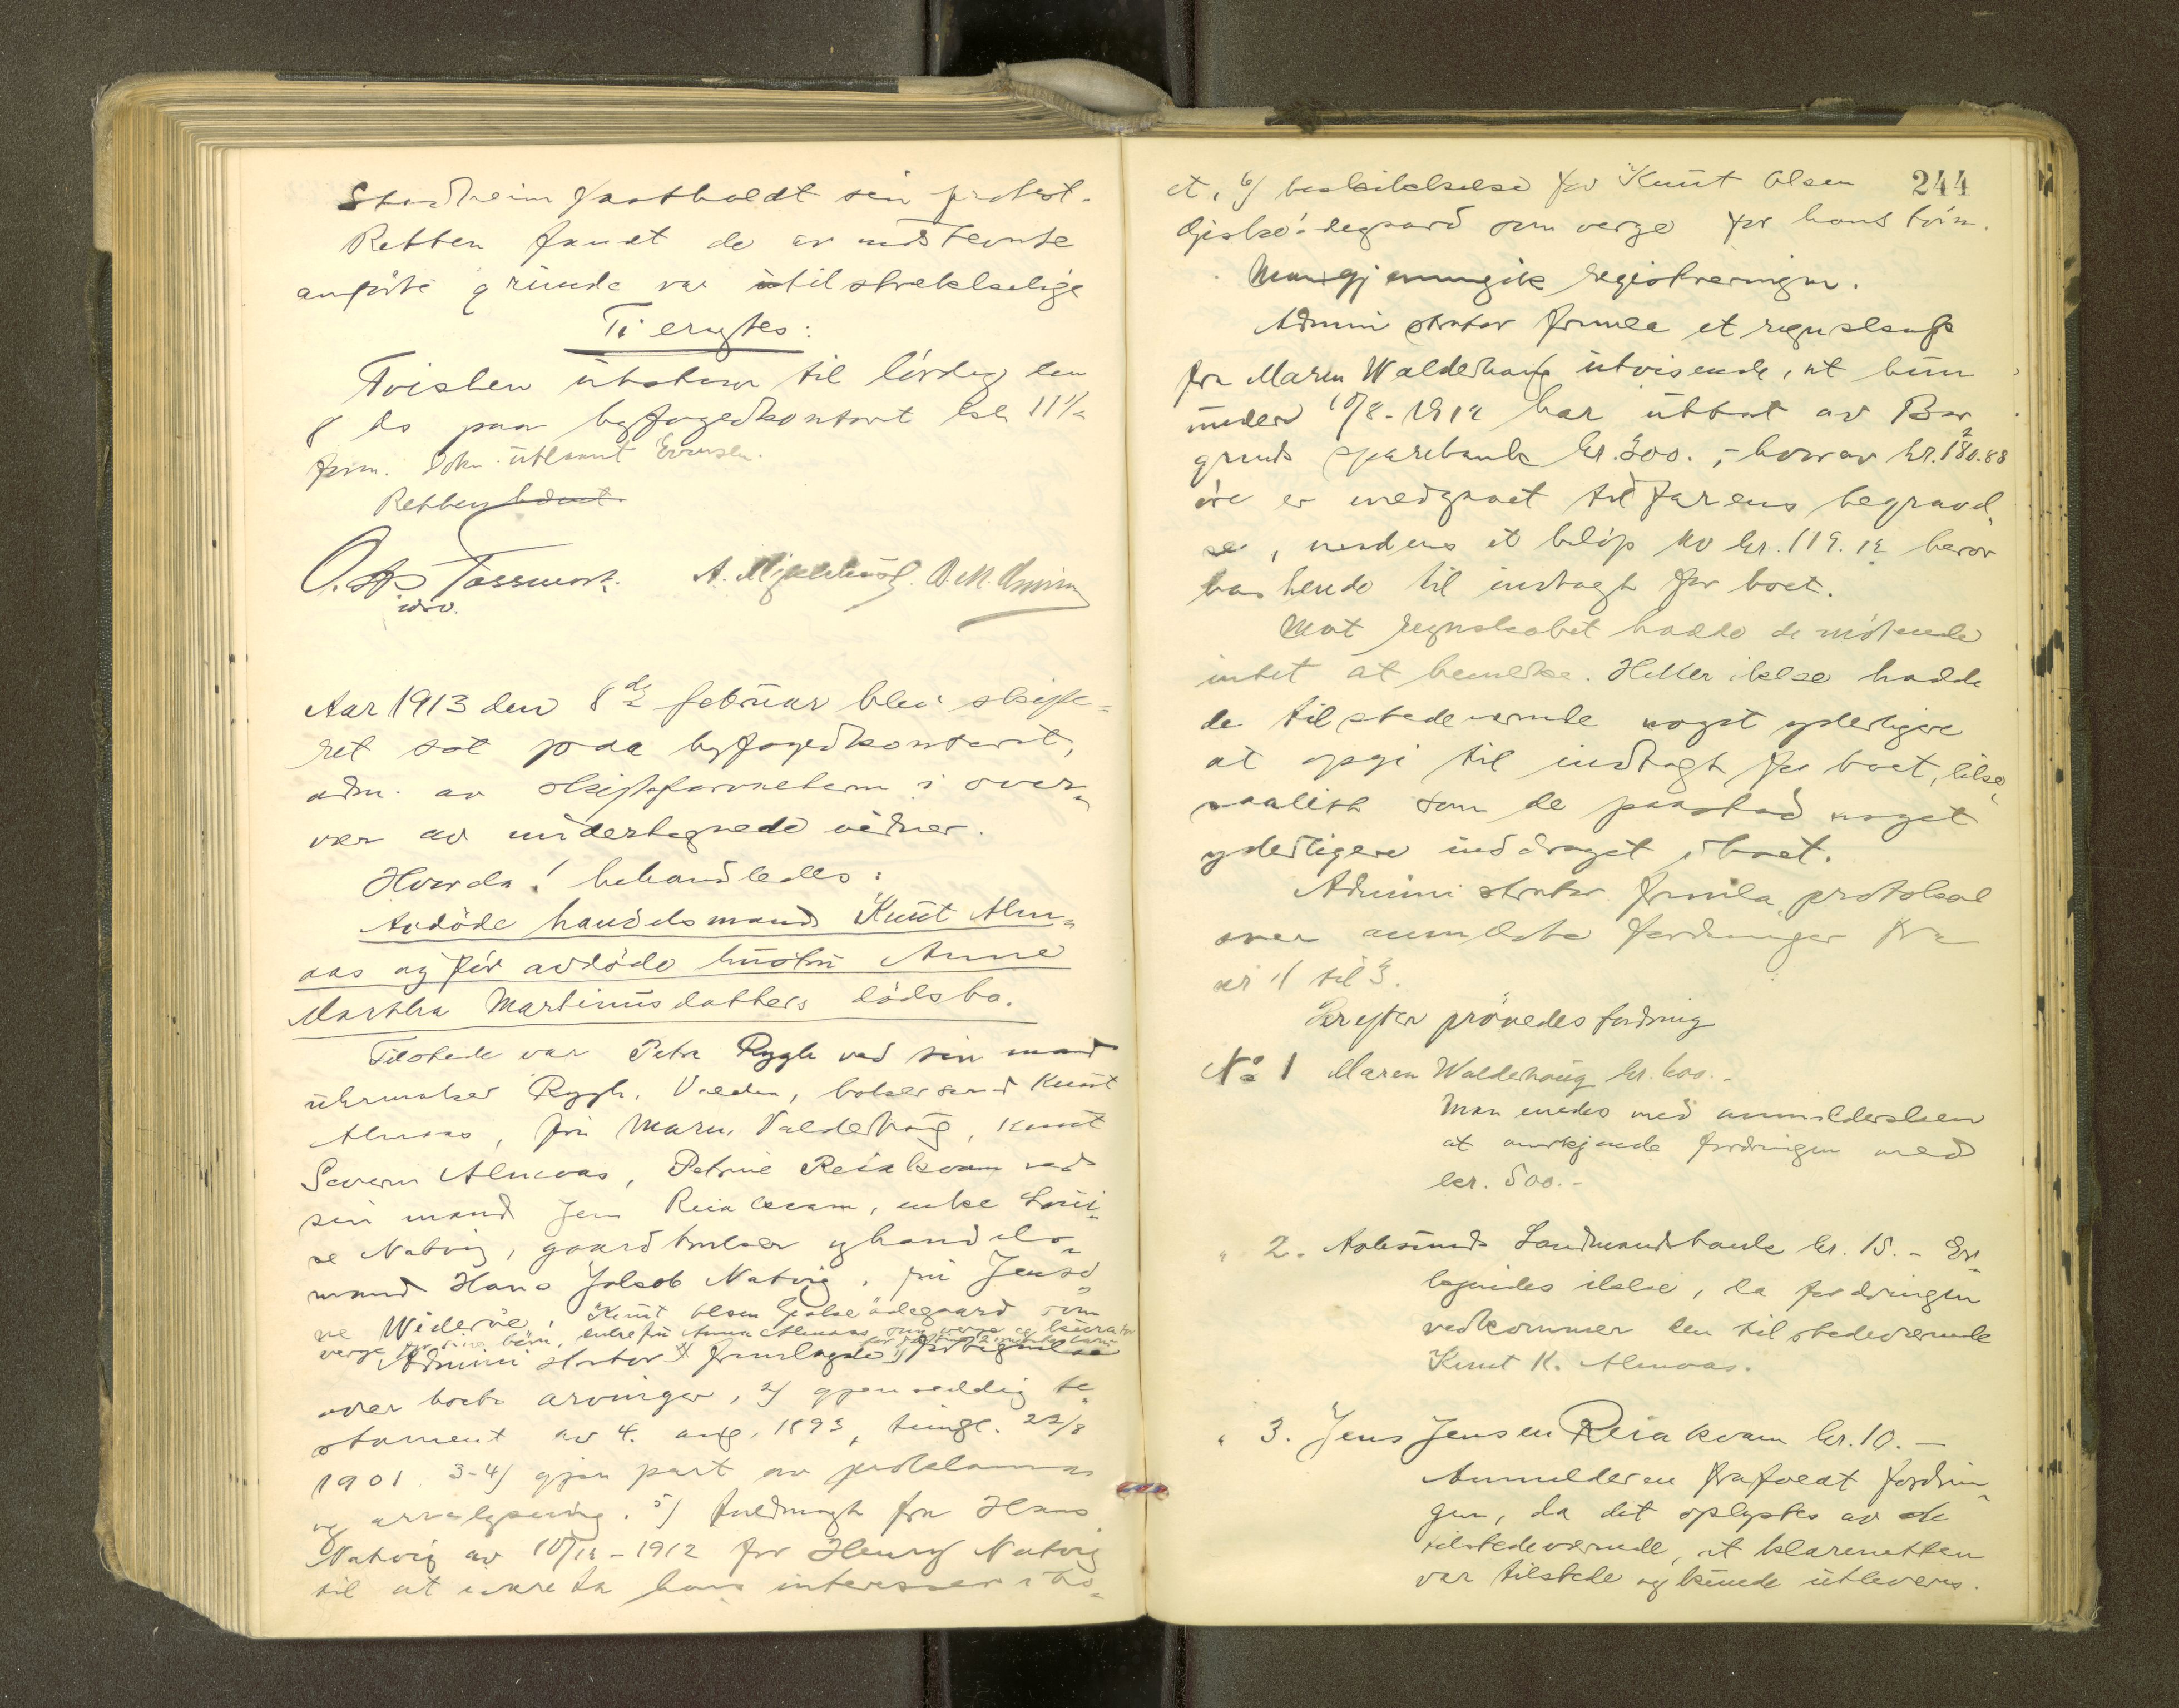 Stadheim fastholdt sin protest.
Retten fandt de av indstevnte
anførte grunde var utilstrekkelige
Ti eragtes:
Tvisten utstaar til lørdag den
8 ds paa byfogedkontoret kl 11½
form. Dok. utlaant Evensen.
Retten hævet.
O. Tassmork.
A. Myklebust.
Aar 1913 den 8de februar blev skifte-
ret sat paa byfogedkontoret,
adm. av skifteforvalteren i over-
vær av undertegnede vidner.
Hvorda! behandledes:
Avdøde handelsmand Knut Alm-
aas og før avdøde hustru Anne
Martha Martinusdatters dødsbo.
Tilstede var Petra Rygh ved sin mand
uhrmaker Rygh, Volda, bokbersvend Knut
Almaas, fru Maren Valderhaug, Knut
Severin Almaas, Petrine Reiakvam ved
sin mand Jens Reiakvam, enke Loui-
se Natvig, gaardbruker og handels-
mand Hans Jakob Natvig, fru Jensi-
ne Widerøe, Knut Olsen Gjiskeødegaard som
verge for sine børn, enkefru Anna Almaas som verge og kurator
for
Administrator fremlagde 1) fortegnelse
over boets arvinger, 2) gjenseldig te-
stament av 4. aug. 1893, tingl. 22/8
1901. 3-4) gjen part av proklamas
og arvelysning. 5) fuldmagt fra Hans
Natvig av 10/12-1912 for Henry Natvig
til at ivareta hans interesser i bo-
244
et, 6) beskikkelse for Knut Olsen
Gjiskeødegaard som verge for hans børn.
Man gjennemgik registreringen.
Administrator fremla et regnskap
fra Maren Walderhaug utvisende, at hun
under 10/8-1912 har uttat av Bor-
grunds sparebank kr. 300.-, hvorav kr. 180.88
øre er medgaaet til farens begravel-
se, medens et beløp av kr. 119.12 beror
hos hende til indtægt for boet.
Mot regnskabet hadde de møtende
intet at bemerke. Heller ikke hadde
de tilstedeværende noget yderligere
at opgi til indtægt for boet, like-
saalitt som de paastod noget
yderligere inddraget i boet.
Administrator fremla protokol
over anmeldte fordringer fra
nr 1 til 3.
Derefter prøvedes fordring
No 1 Maren Walderhaug kr. 600.-
Man enedes med anmeldersken
at anerkjende fordringen med
kr. 500.-
" 2. Aalesunds Landmandsbank kr. 15.- Er-
kjendes ikke, da fordringen
vedkommer den tilstedeværende
Knut K. Almaas.
" 3. Jens Jensen Reiakvam kr. 10.-
Anmelderen frafaldt fordrin-
gen, da det oplystes av de
tilstedeværende, at klarenetten
var tilstede og kunde utleveres.